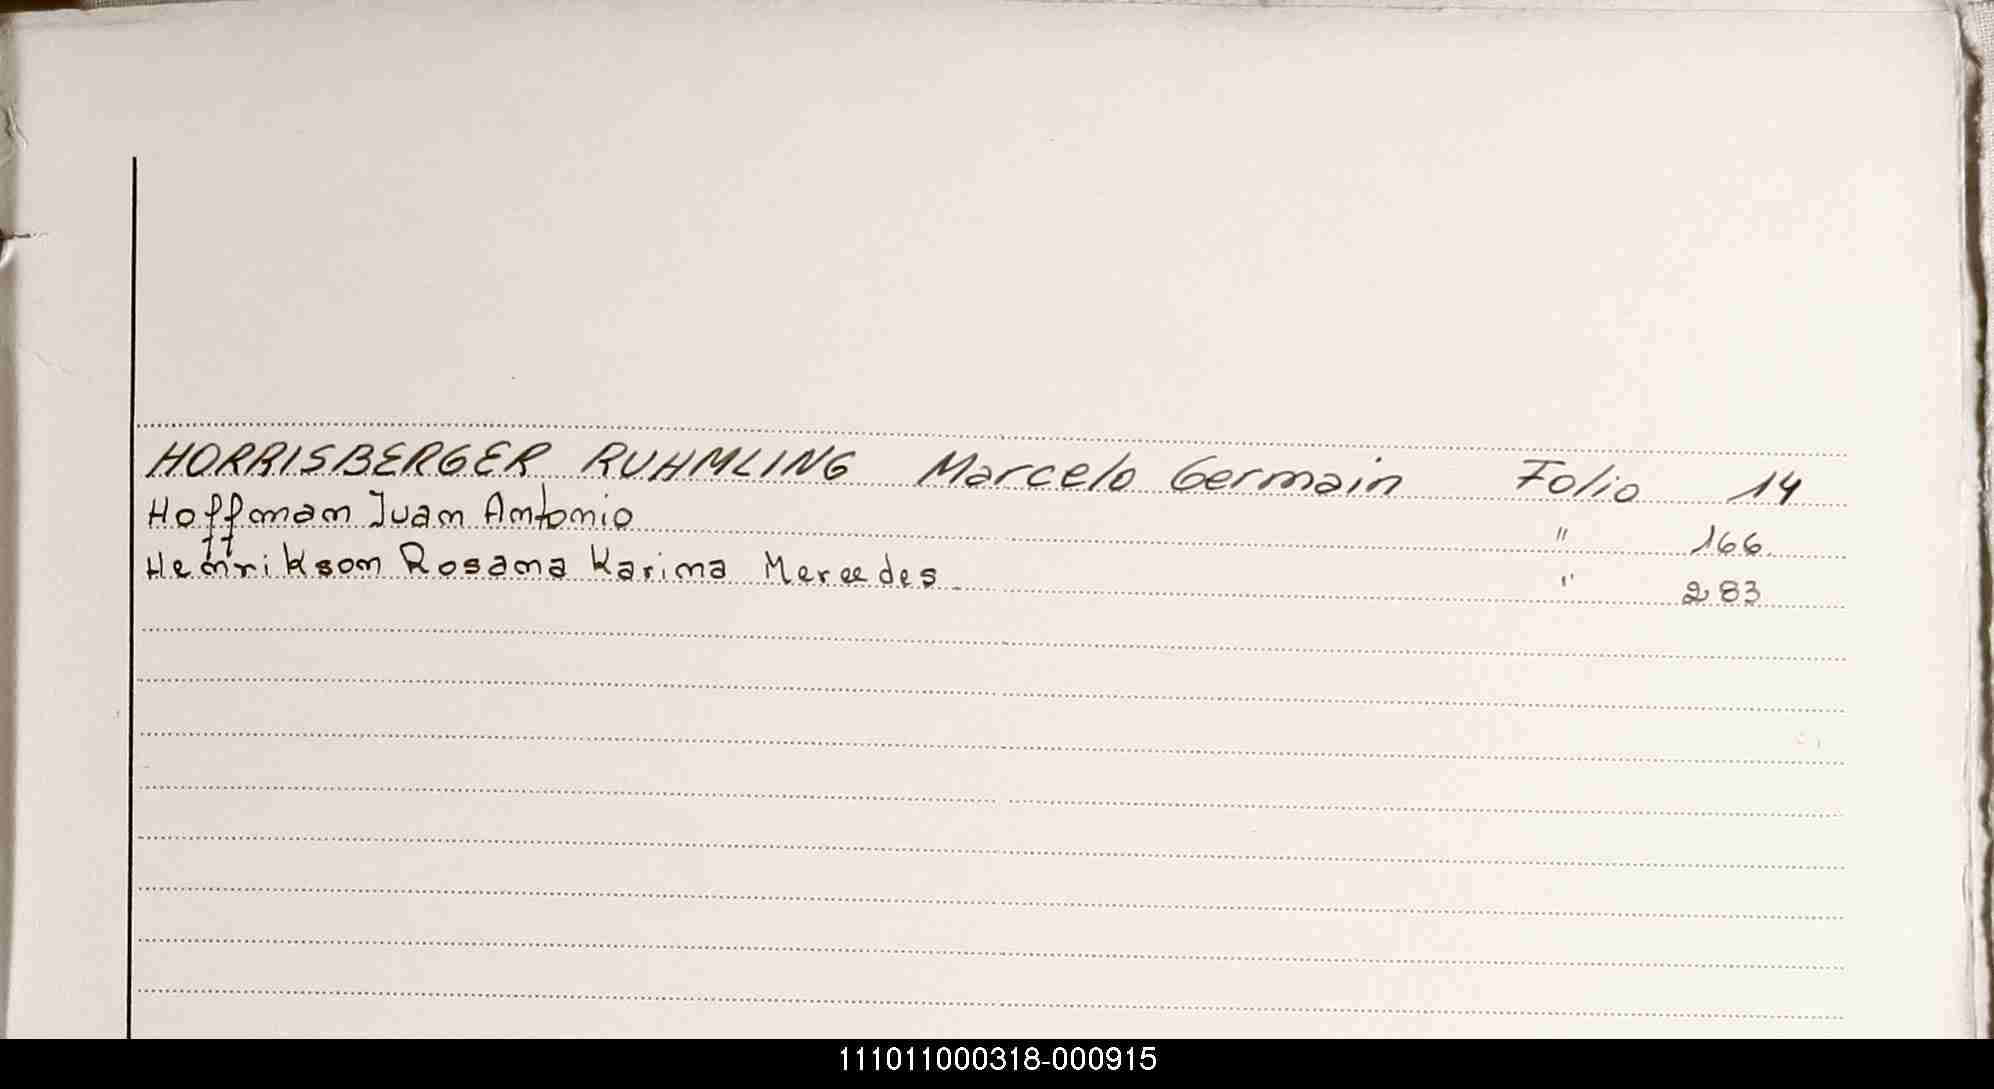 HORRISBERGER RUHMLING Marcelo Germain Folio 14
Hoffman Juan Antonio " 166
Henrikson Rosana Karina Mercedes " 283
111011000318-000915